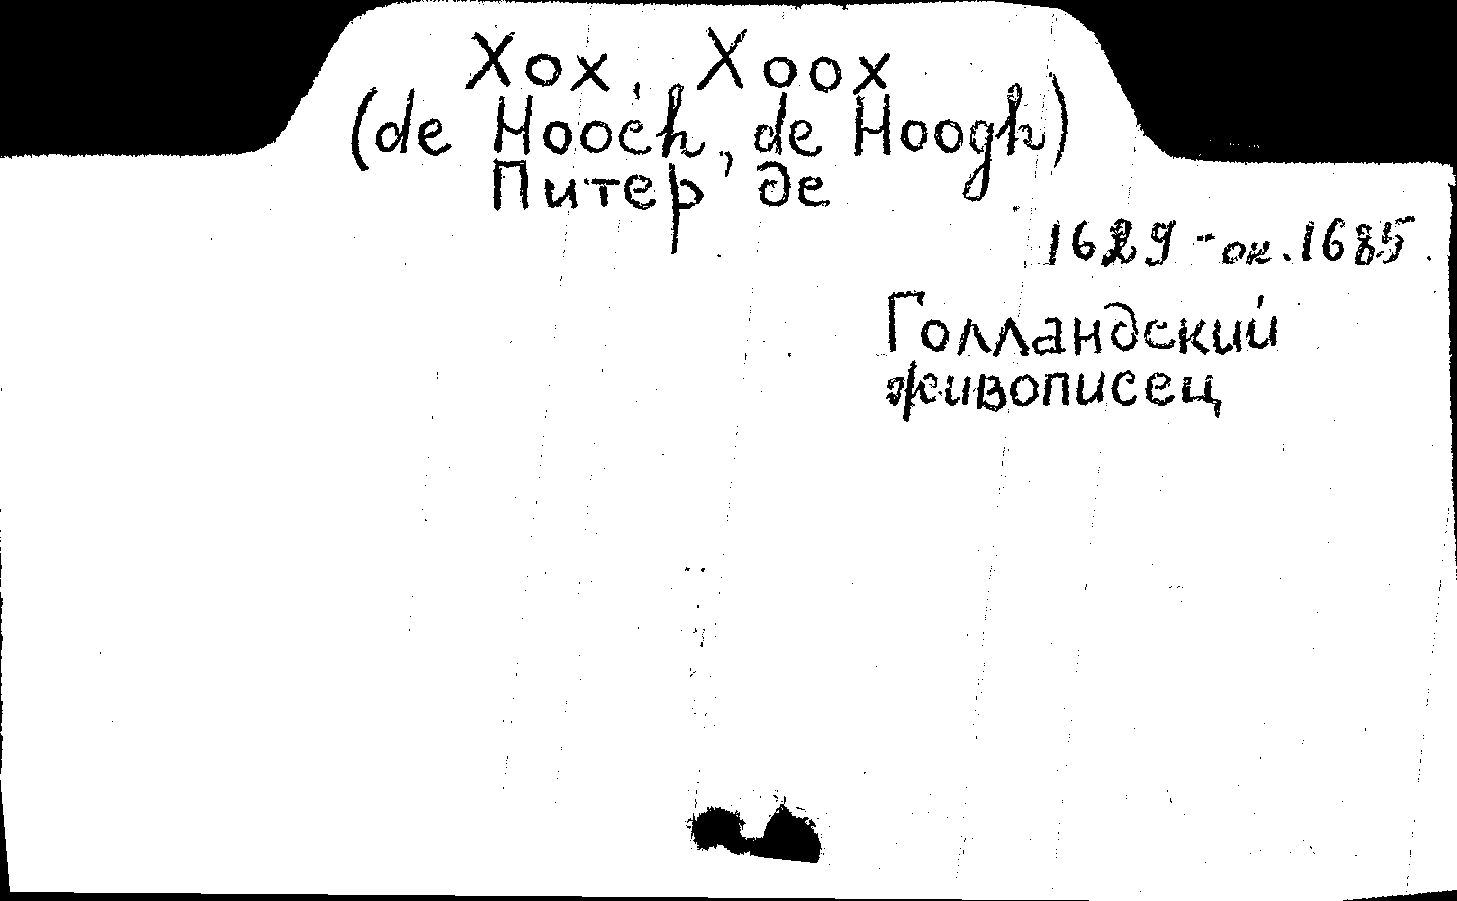 Хох, Хоох
(de Hooch, de Hoogh)
Питер де
1629 - ок. 1685
Голландский
живописец